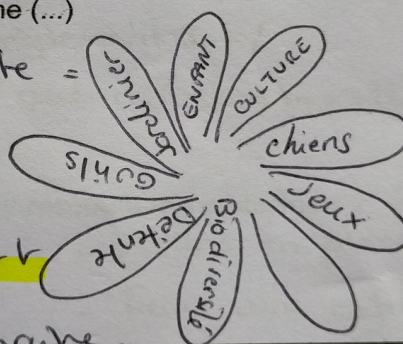 ne (...)
te =
Jardinier
ENFANT
CULTURE
chiens
Jeux
Biodiversité
Détente